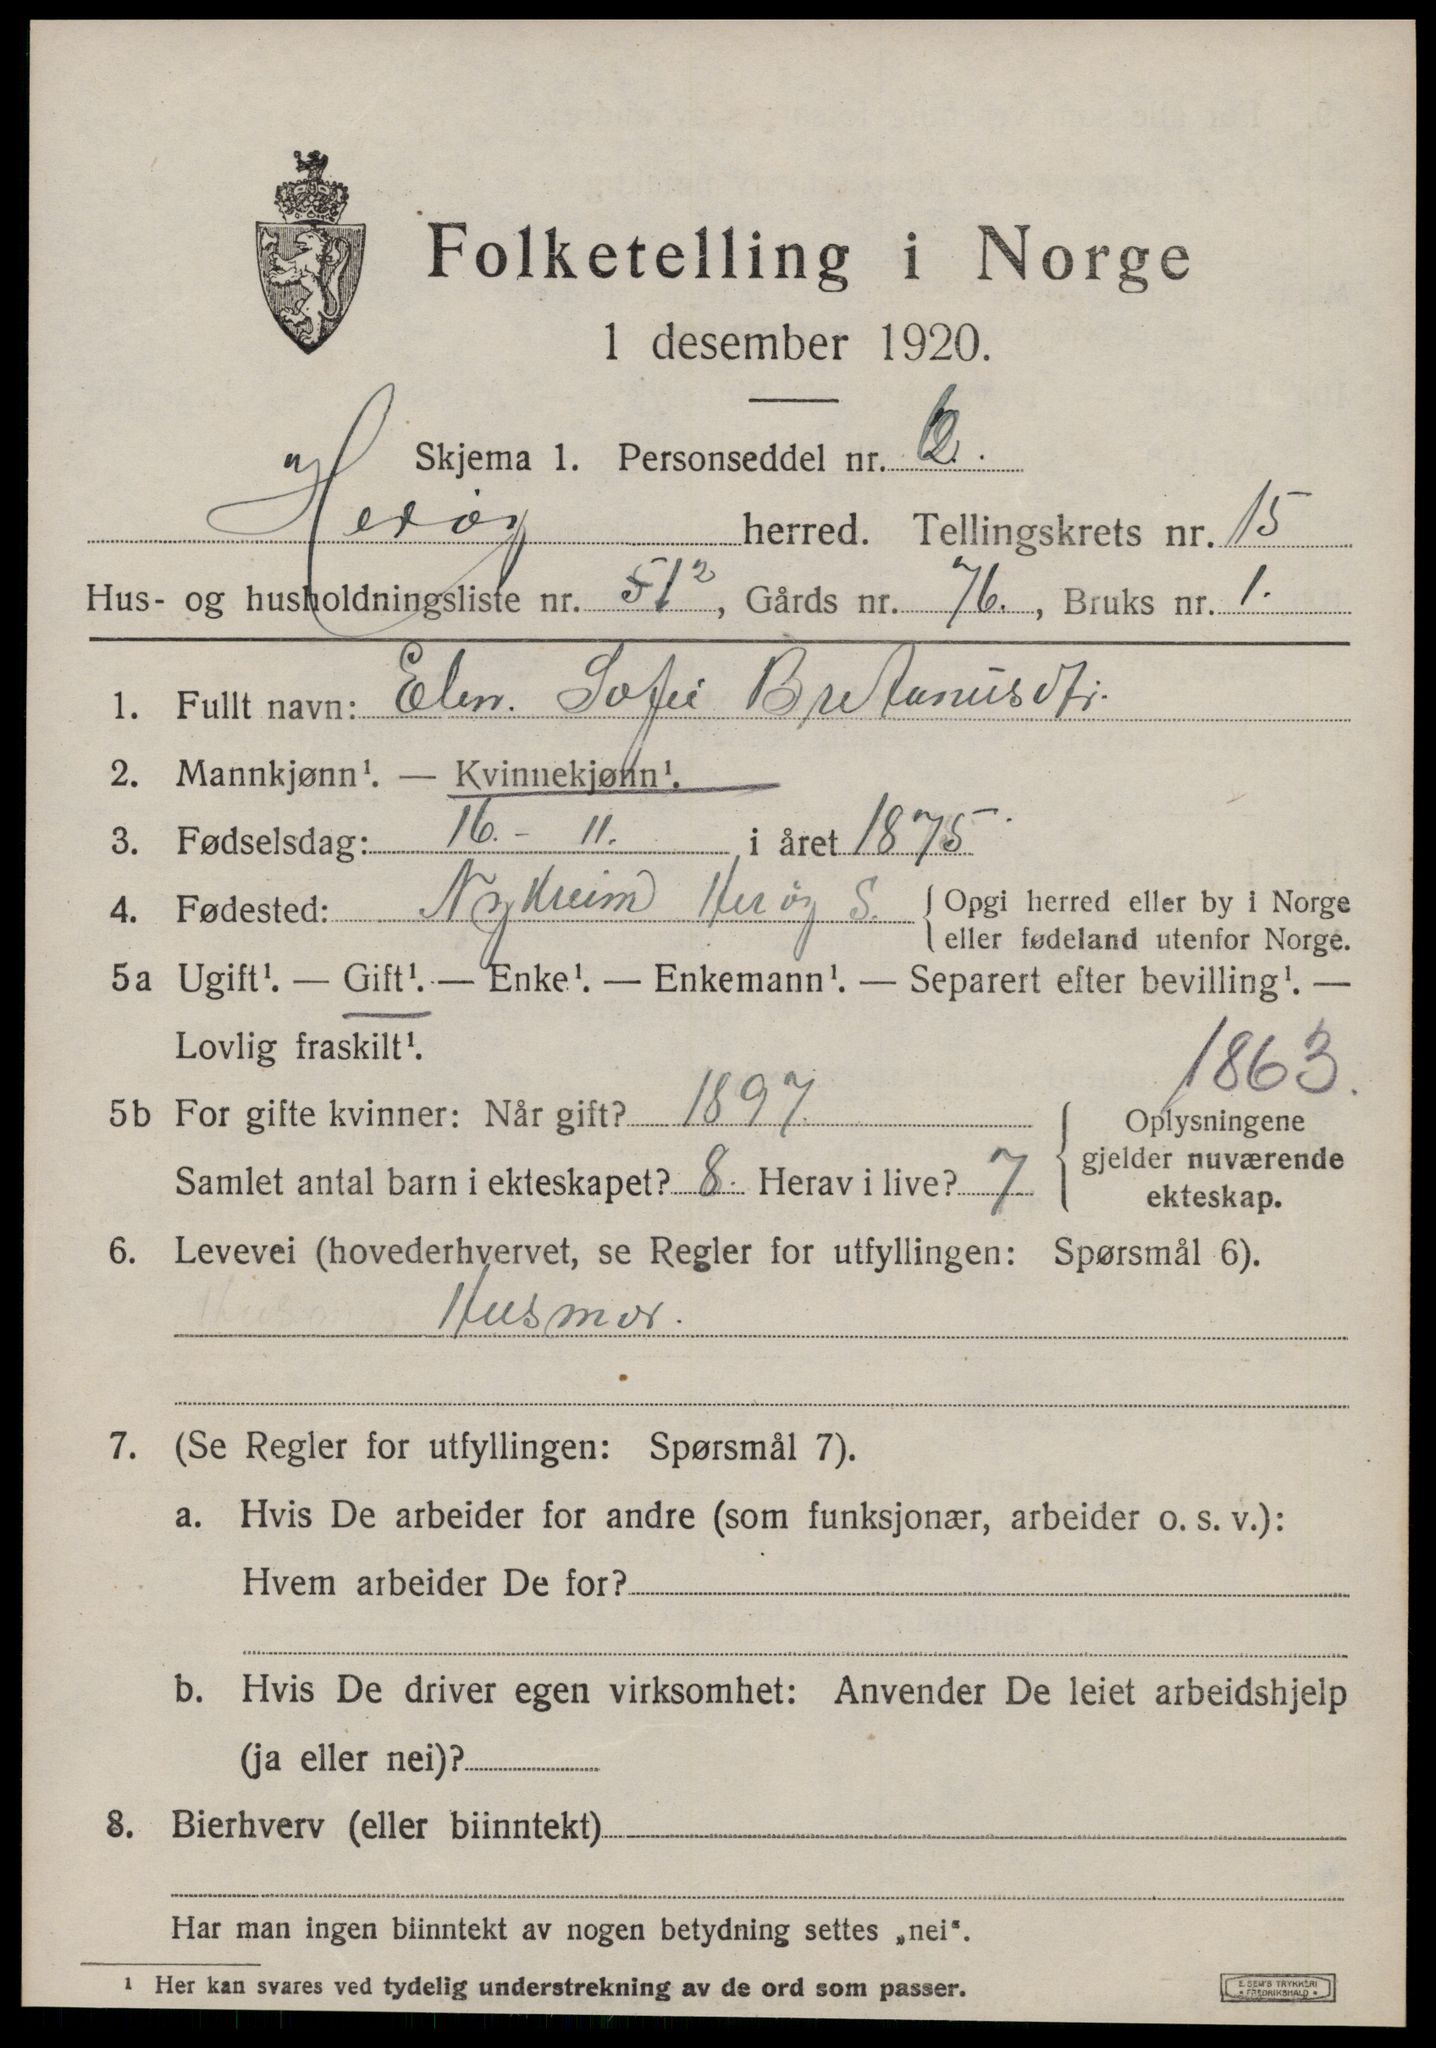 Folketelling i Norge
1 desember 1920.
Skjema 1. Personseddel nr. 2.
Herøy herred. Tellingskrets nr. 15
Hus- og husholdningsliste nr. 51², Gårds nr. 76., Bruks nr. 1.
1. Fullt navn: Elen. Sofie Bretanusdtr.
2. Mannkjønn¹. — Kvinnekjønn¹.
3. Fødselsdag: 16. - 11. i året 1875.
4. Fødested: Nykreim Herøy S. { Opgi herred eller by i Norge
eller fødeland utenfor Norge.
5a Ugift¹. — Gift¹. — Enke¹. — Enkemann¹. — Separert efter bevilling¹. —
Lovlig fraskilt¹.
1863.
5b For gifte kvinner: Når gift? 1897. { Oplysningene
gjelder nuværende
ekteskap.
Samlet antal barn i ekteskapet? 8. Herav i live? 7
6. Levevei (hovederhvervet, se Regler for utfyllingen: Spørsmål 6).
Husmor.
7. (Se Regler for utfyllingen: Spørsmål 7).
a. Hvis De arbeider for andre (som funksjonær, arbeider o. s. v.):
Hvem arbeider De for?
b. Hvis De driver egen virksomhet: Anvender De leiet arbeidshjelp
(ja eller nei)?
8. Bierhverv (eller biinntekt)
Har man ingen biinntekt av nogen betydning settes „nei“.
¹ Her kan svares ved tydelig understrekning av de ord som passer.
E. SEM'S TRYKKERI
* FREDRIKSHALD *